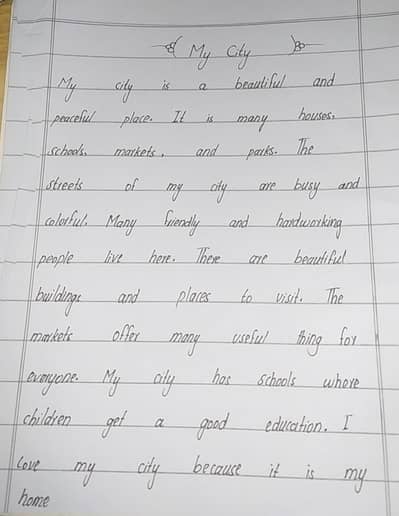 My City
My city is a beautiful and
peaceful place. It is many houses.
schools, markets, and parks. The
streets of my city are busy and
colorful. Many friendly and hardworking
people live here. There are beautiful
buildings and places to visit. The
markets offer many useful thing for
everyone. My city has schools where
children get a good education. I
love my city because it is my
home